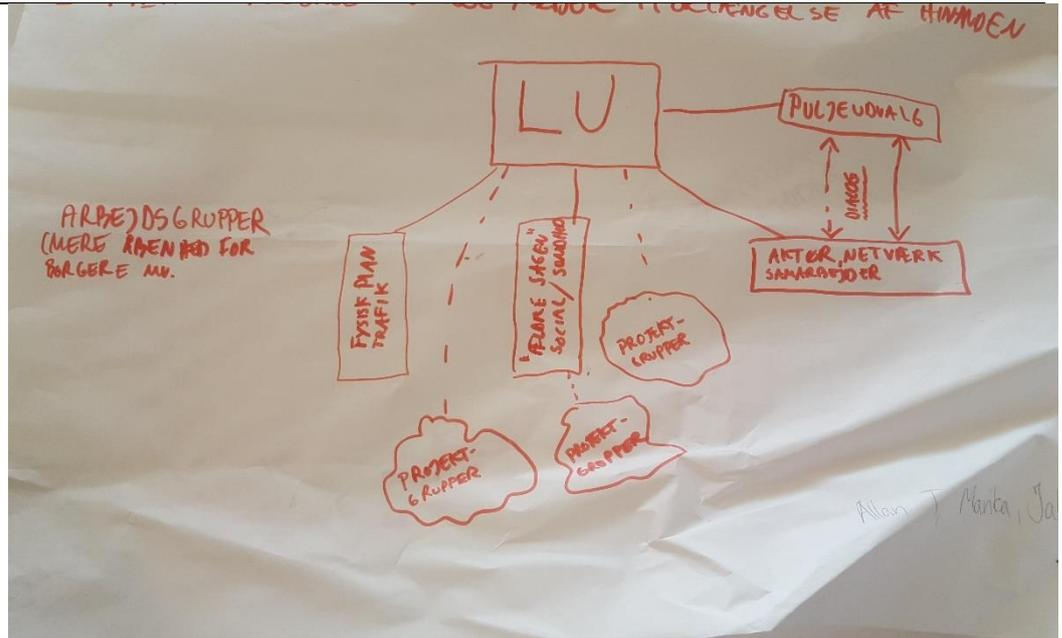 AF HINANDEN
LU
PULJEUDVALG
DIALOG
AKTØR, NETVÆRK
SAMARBEJDER
ARBEJDSGRUPPER
(MERE FOR
BORGERE MV.
FYSISK PLAN
TRAFIK
"ÆLDRE SAGEN"
SOCIAL/SUNDHED
PROJEKT-
GRUPPER
PROJEKT-
GRUPPER
PROJEKT-
GRUPPER
Allan J, Manka, Ja